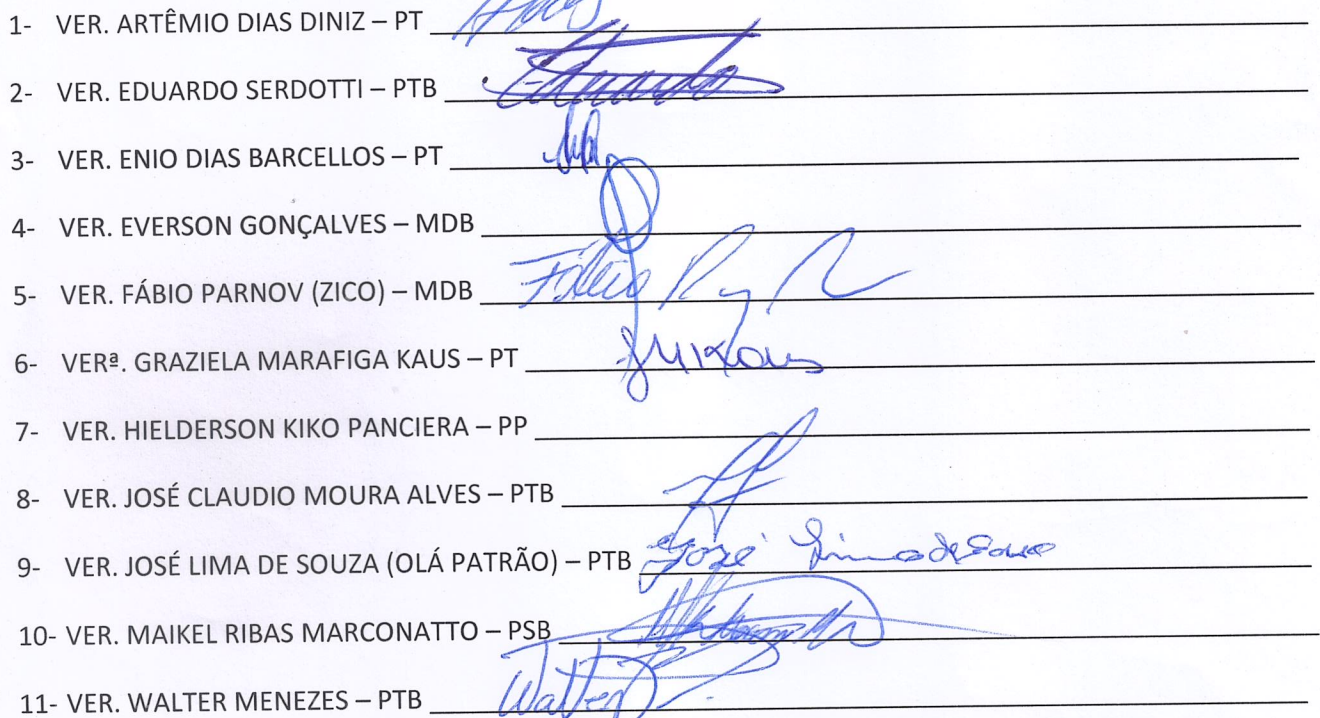 1- VER. ARTÊMIO DIAS DINIZ – PT
2- VER. EDUARDO SERDOTTI – PTB Eduardo
3- VER. ENIO DIAS BARCELLOS – PT
4- VER. EVERSON GONÇALVES – MDB
5- VER. FÁBIO PARNOV (ZICO) – MDB Fábio
6- VERª. GRAZIELA MARAFIGA KAUS – PT GMKaus
7- VER. HIELDERSON KIKO PANCIERA – PP
8- VER. JOSÉ CLAUDIO MOURA ALVES – PTB
9- VER. JOSÉ LIMA DE SOUZA (OLÁ PATRÃO) – PTB José Lima de Souza
10- VER. MAIKEL RIBAS MARCONATTO – PSB
11- VER. WALTER MENEZES – PTB Walter